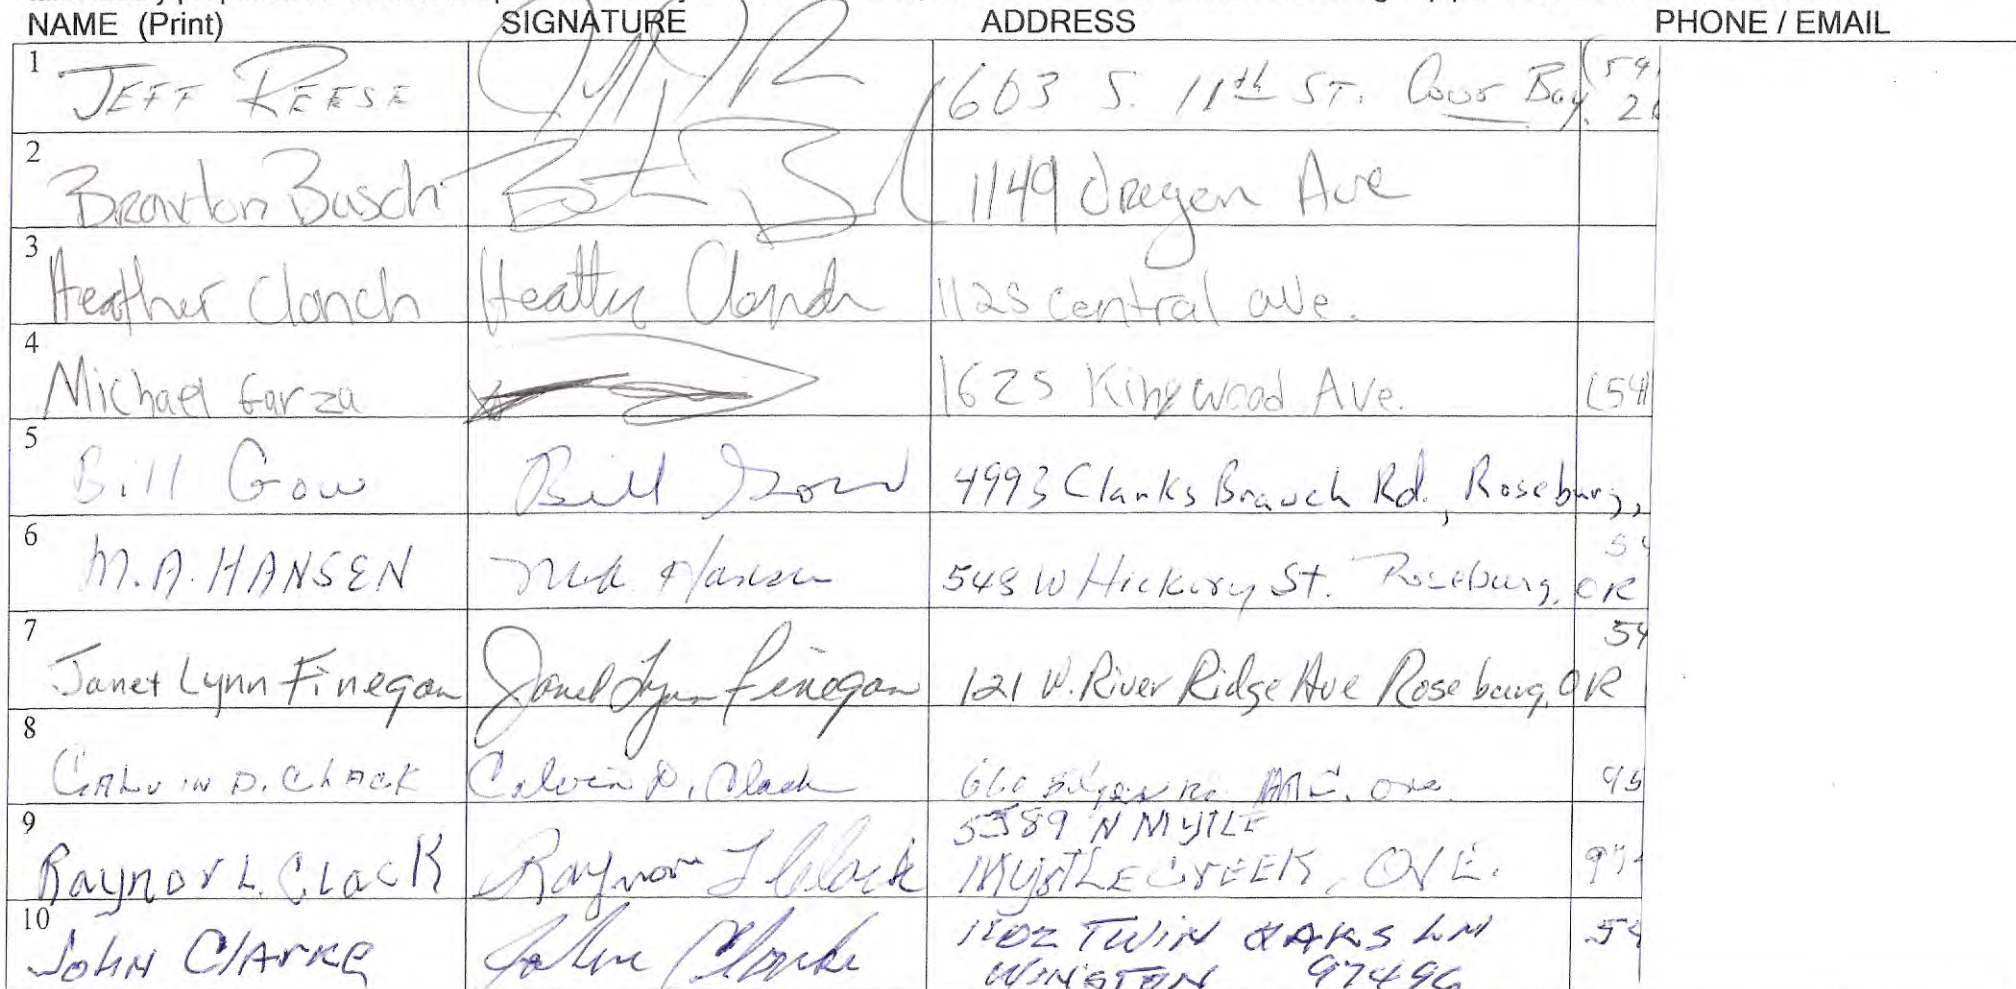 NAME (Print) SIGNATURE ADDRESS PHONE / EMAIL
1 JEFF REESE 603 S. 11th ST. Coos Bay. (54 2
2 Branton Busch 1149 Oregon Ave
3 Heather Clonch Heather Clonch 1125 Central ave.
4 Michael Garza 1625 Kingwood Ave. (541
5 Bill Gow Bill Gow 4993 Clarks Branch Rd., Roseburg,
6 M.A. HANSEN M.A. Hansen 548 W Hickory St. Roseburg, OR 54
7 Janet Lynn Finegan Janet Lynn Finegan 121 W. River Ridge Ave Roseburg, OR 54
8 CALVIN D. CLACK Calvin D. Clack M.C. Ore. 95
9 Raynor L. Clack Raynor L Clack 5389 N MyTLE
MyRTLE CrEEK, OrE. 97
10 JOHN CLArKE John Clarke TWIN OAKS LN 54
WINSTON 97496